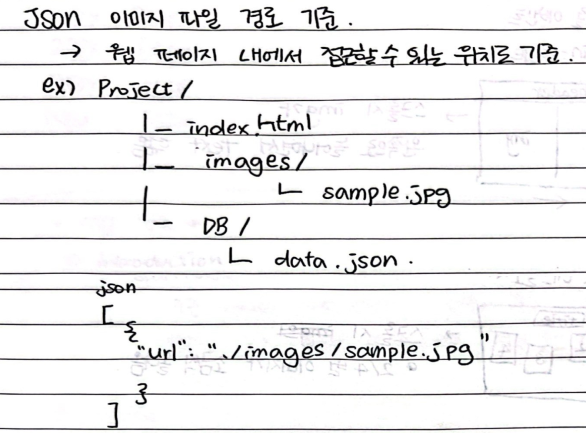 JSON 이미지 파일 경로 기준.
→ 웹 페이지 내에서 접근할 수 있는 위치로 기준.
ex) Project/
|_ index.html
|_ images/
└ sample.jpg
|_ DB/
└ data.json.
json
[
{
"url": "./images/sample.jpg"
}
]